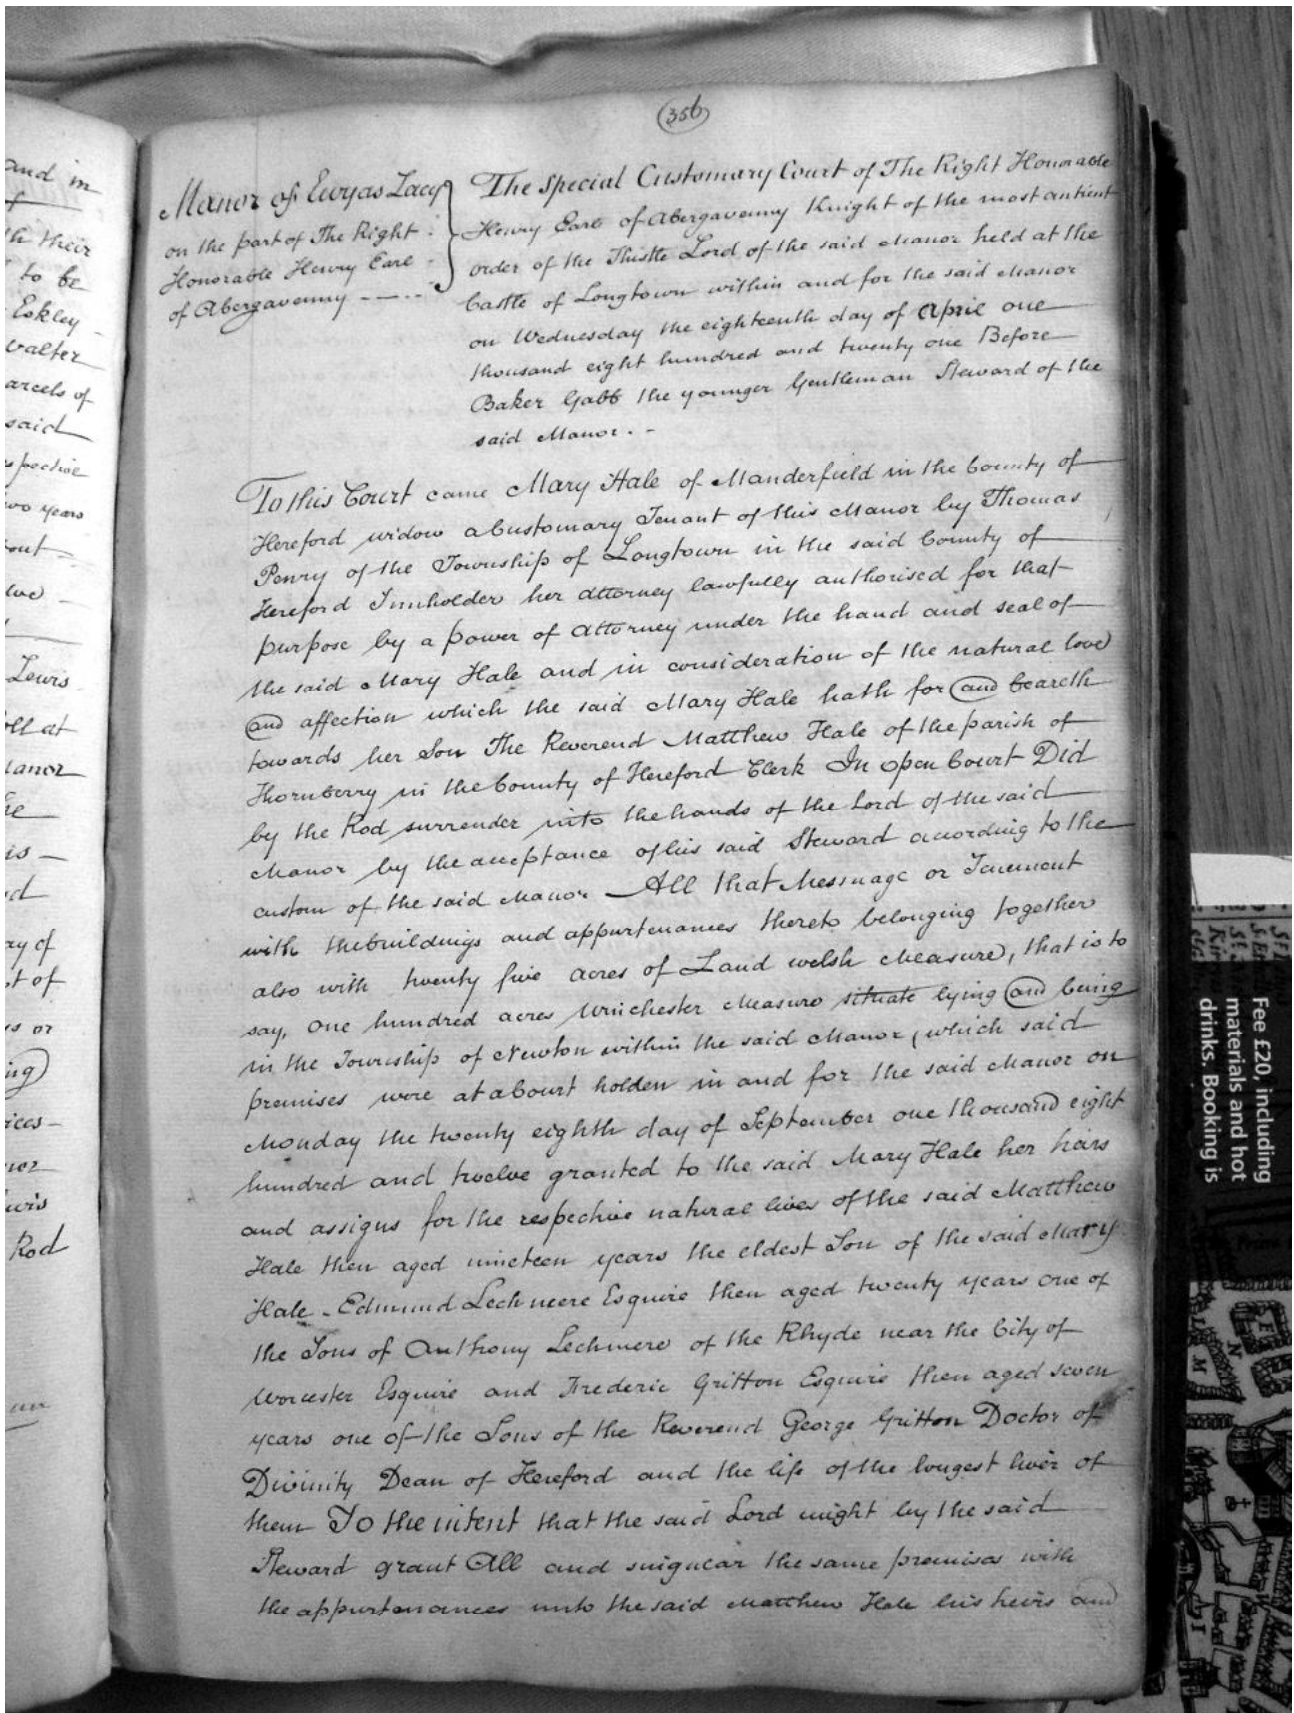 and in
f
th their
to be
Eskley
valter
arcels of
said
spective
two years
out
Lewis
oll at
lanor
he
is
d
ay of
t of
s or
ing
ices
nor
ewis
Rod
356
Manor of Ewyas Lacy
on the part of The Right
Honorable Henry Earl
of Abergavenny
The Special Customary Court of The Right Honorable
Henry Earl of Abergavenny Knight of the most antient
order of the Thistle Lord of the said Manor held at the
Castle of Longtown within and for the said Manor
on Wednesday the eighteenth day of April one
thousand eight hundred and twenty one Before
Baker Gabb the younger Gentleman Steward of the
said Manor. -
To this Court came Mary Hale of Manderfield in the County of
Hereford widow a Customary Tenant of this Manor by Thomas
Penry of the Township of Longtown in the said County of
Hereford Innholder her attorney lawfully authorised for that
purpose by a power of attorney under the hand and seal of
the said Mary Hale and in consideration of the natural love
and affection which the said Mary Hale hath for and beareth
towards her Son The Reverend Matthew Hale of the parish of
Thornberry in the County of Hereford Clerk In open Court Did
by the Rod surrender into the hands of the Lord of the said
Manor by the acceptance of his said Steward according to the
custom of the said Manor All that Messuage or Tenement
with the buildings and appurtenances thereto belonging together
also with twenty five acres of Land welsh Measure, that is to
say, one hundred acres Winchester Measure situate lying and being
in the Township of Newton within the said Manor, which said
premises were at a Court holden in and for the said Manor on
Monday the twenty eighth day of September one thousand eight
hundred and twelve granted to the said Mary Hale her heirs
and assigns for the respective natural lives of the said Matthew
Hale then aged nineteen years the eldest Son of the said Mary
Hale - Edmund Lechmere Esquire then aged twenty years one of
the Sons of Anthony Lechmere of the Rhyde near the City of
Worcester Esquire and Frederic Gritton Esquire then aged seven
years one of the Sons of the Reverend George Gritton Doctor of
Divinity Dean of Hereford and the life of the longest liver of
them To the intent that the said Lord might by the said
Steward grant All and singular the same premises with
the appurtenances unto the said Matthew Hale his heirs and
Fee £20, including
materials and hot
drinks. Booking is